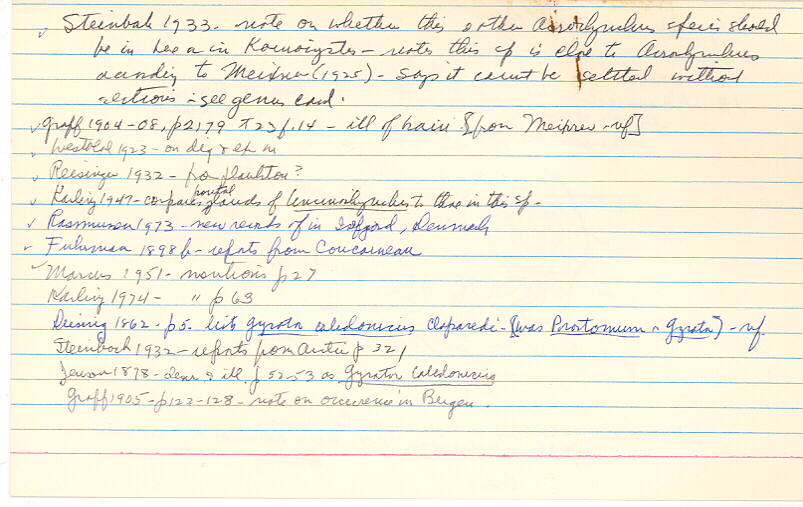 ✓ Steinbock 1933 - note on whether this & other Acrorhynchus species should
be in here or in Koinocystis - notes this sp is close to Acrorhynchus
according to Meixner (1925) - says it cannot be settled without
sections - see genus card.
✓ Graff 1904-08, p2179 T23 f.14 - ill of [from Meixner - vf]
✓ Westblad 1923 - on
✓ Reisinger 1932 - plankton?
✓ Karling 1947 - compares prostat glands of to those in this sp -
✓ Rasmussen 1973 - new records of in Isefjord, Denmark
✓ Fuhrmann 1898b - reports from Concarneau
✓ Marcus 1951 - mentions p27
Karling 1974 - " p 63
Diesing 1862 - p5. lists gyrator caledonicus Claparedi - [was Prostomum n Gyrator] - vf
Steinbock 1932 - reports from p 321
Jensen 1878 - descr & ill. p 52-53 as Gyrator Caledonicus
Graff 1905 - p122-128 - note on occurrence in Bergen.